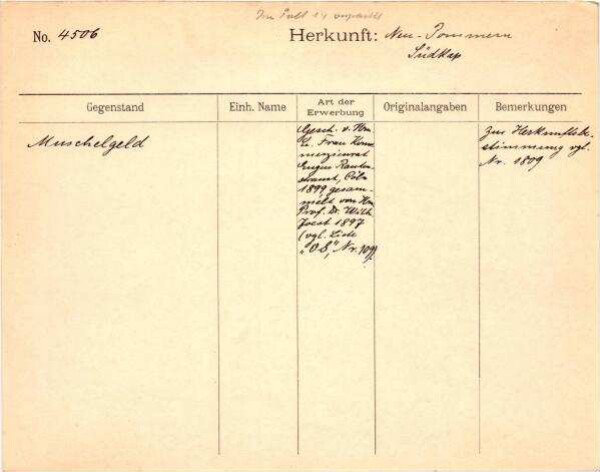 No. 4506
Herkunft: Neu-Pommern
Südkap
Gegenstand
Einh. Name
Art der
Erwerbung
Originalangaben
Bemerkungen
Muschelgeld
Gesch. v. Hrn
u. Frau Kom
merzienrat
Eugen Rauten-
strauch, Cöln
1899, gesam-
melt von Hn
Prof. Dr. Wilh.
Joest 1897
(vgl. Liste
"O.S." Nr.
Zur Herkunftsbe-
stimmung vgl.
Nr. 1809